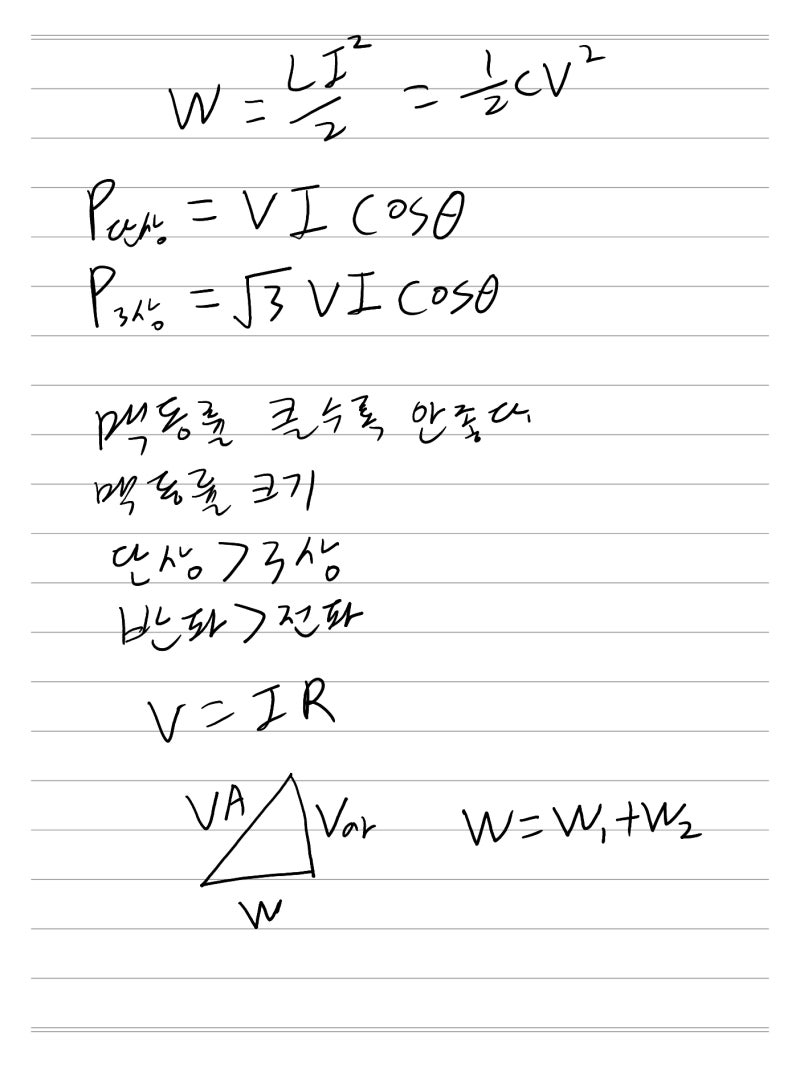 W = LI²/2 = 1/2 CV²
P단상 = VI cosθ
P3상 = √3 VI cosθ
맥동률 클수록 안좋다.
맥동률 크기
단상 > 3상
반파 > 전파
V = IR
VA Var W = W₁ + W₂
W